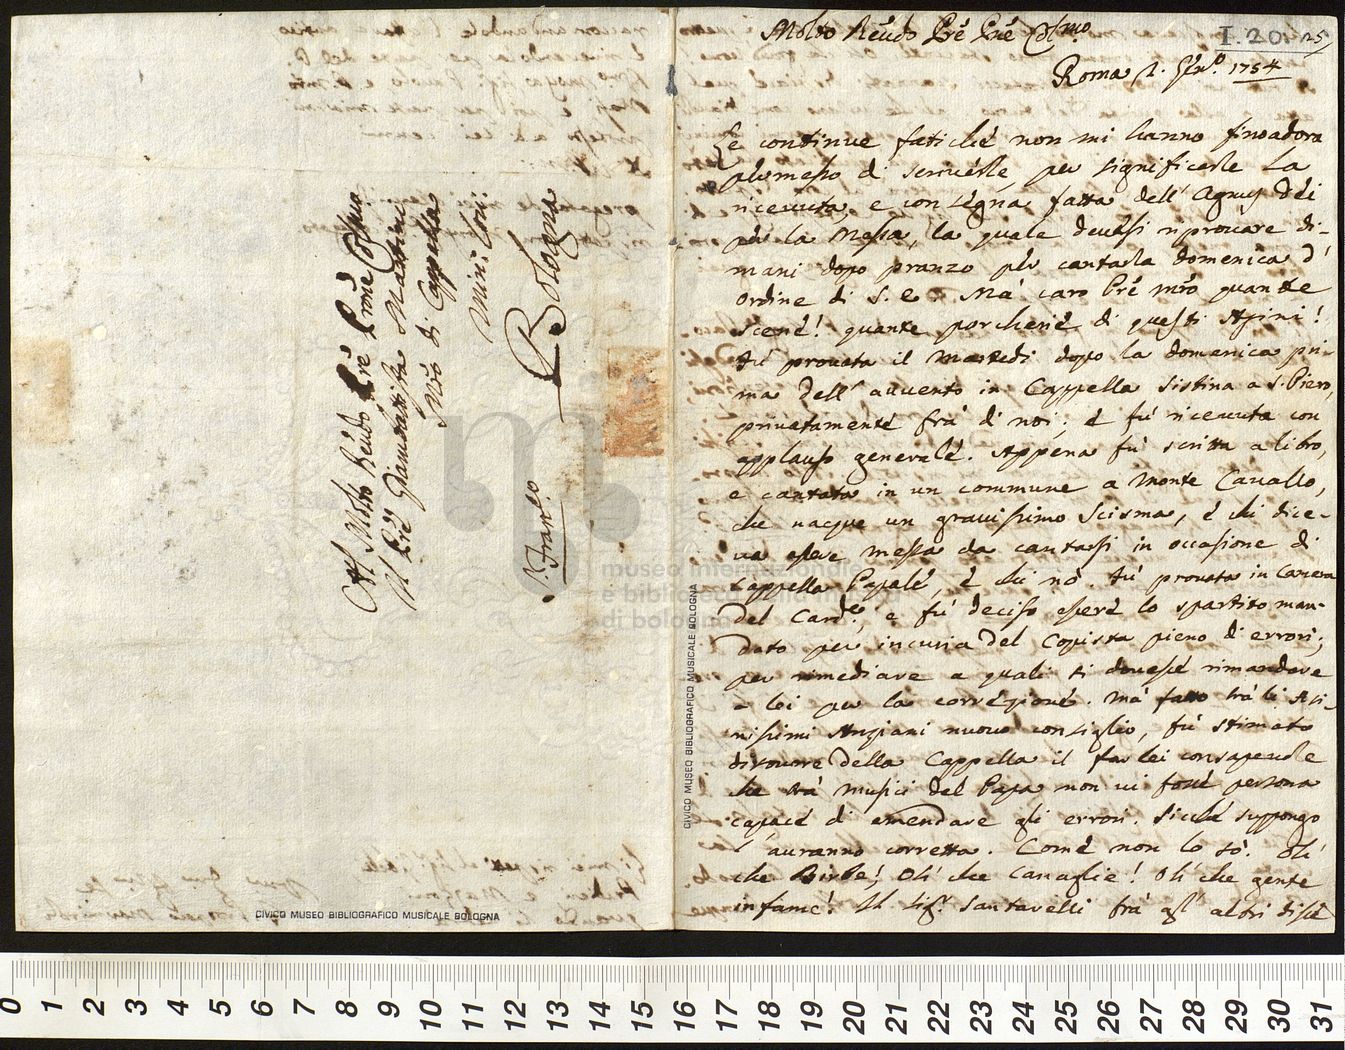 Molto Reudo Pre Pre Colmo
I.20. 25
Roma 2. Genro. 1754
Le continue fatiche non mi hanno finoadora
permesso di scriverle, per significarle la
ricevuta, e consegna fatta dell' Agnus Dei
per la Messa, la quale devesi riprovare di-
mani dopo pranzo per cantarla domenica d'
ordine di S. E. Mà caro Pre mro quante
scene! quante porcherie di questi Asini!
Fù provata il Martedi dopo la domenica pri-
ma dell' avvento in Cappella Sistina a S. Piero,
privatamente frà di noi; e fù ricevuta con
applauso generale. Appena fù scritta a libro,
e cantata in un commune a Monte Cavallo,
che nacque un gravissimo Scisma, e chi dice-
va essere messa da cantarsi in occasione di
Cappella Papale, e chi nò. Fù provata in Camera
del Carde, e fù deciso essere lo spartito man-
dato per incuria del Copista pieno di errori;
per rimediare a quali si dovesse rimandare
a lei per la correzione. Mà fatto trà li Asi-
nissimi Anziani nuovo consiglio, fù stimato
disonore della Cappella il far lei consapevole
che trà Musici del Papa non vi fosse persona
capace di emendare gli errori. Sicche suppongo
l'auranno corretta. Come non lo sò. Oh'
che Birbe! Oh' che Canaglie! Oh' che gente
infame! Il Sigr. Santarelli frà gl' altri disse
Al Molto Reudo Pre Prone Colmo
Il Pre Giambattista Martini
Mro di Cappella
Min: Con:
Bologna
S. Franco.
museo internazionale
e biblioteca della musica
di bologna
CIVICO MUSEO BIBLIOGRAFICO MUSICALE BOLOGNA
CIVICO MUSEO BIBLIOGRAFICO MUSICALE BOLOGNA
0 1 2 3 4 5 6 7 8 9 10 11 12 13 14 15 16 17 18 19 20 21 22 23 24 25 26 27 28 29 30 31